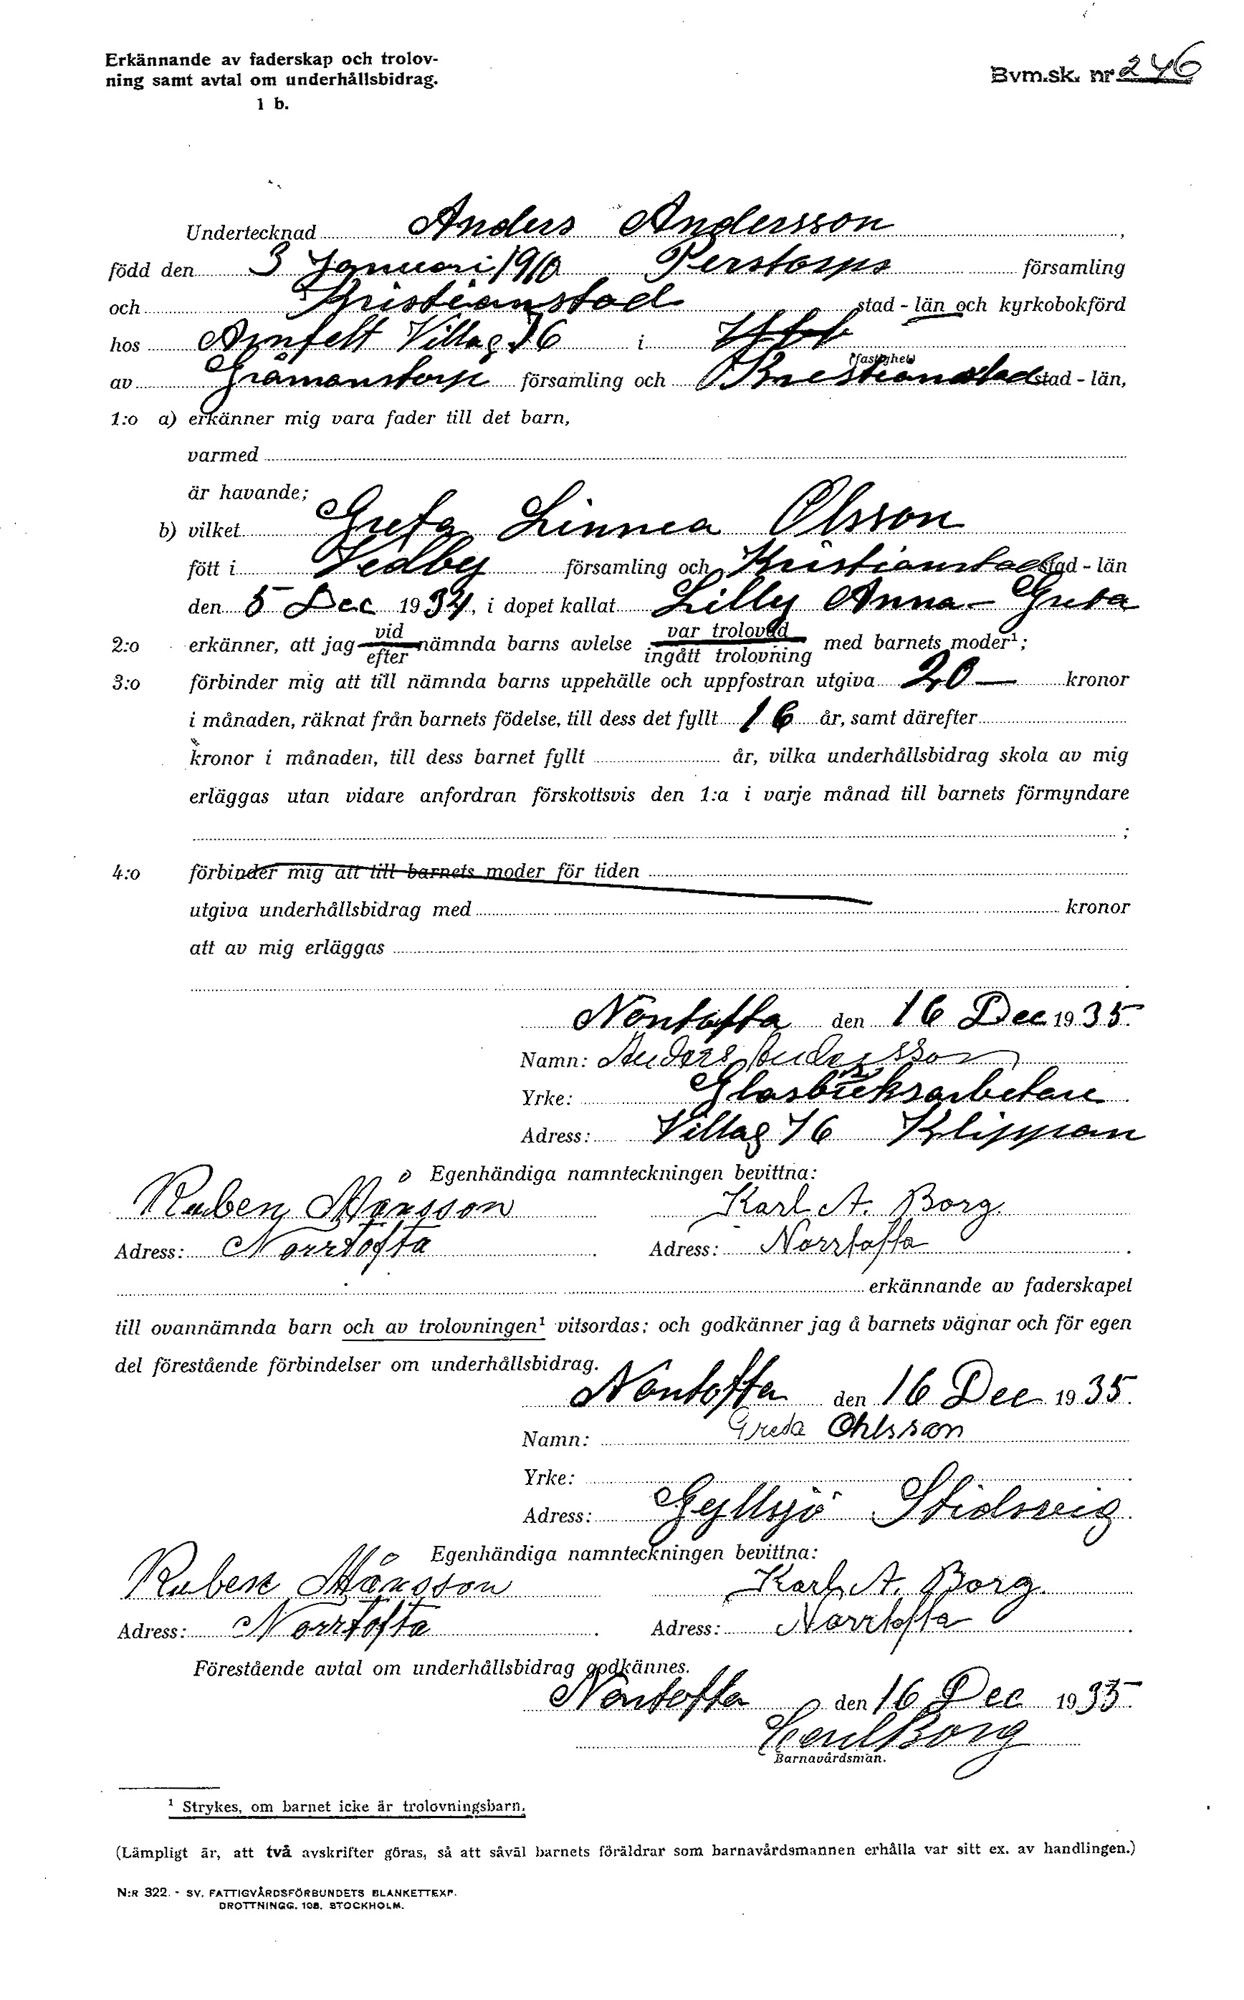 Erkännande av faderskap och trolov-
ning samt avtal om underhållsbidrag.
1 b.
Bvm.sk. nr 246
Undertecknad Anders Andersson,
född den 3 Januari 1910 Perstorps församling
och Kristianstad stad - län och kyrkobokförd
hos Arnfelt Villag 76 i
(fastighet)
av Gråmanstorp församling och Kristianstad stad - län,
1:o a) erkänner mig vara fader till det barn,
varmed
är havande;
b) vilket Greta Linnea Olsson
fött i Vedby församling och Kristianstad stad - län
den 5 Dec 1934, i dopet kallat Lilly Anna-Greta
2:o erkänner, att jag vid/efter nämnda barns avlelse var trolovad/ingått trolovning med barnets moder¹;
3:o förbinder mig att till nämnda barns uppehälle och uppfostran utgiva 20 — kronor
i månaden, räknat från barnets födelse, till dess det fyllt 16 år, samt därefter
kronor i månaden, till dess barnet fyllt år, vilka underhållsbidrag skola av mig
erläggas utan vidare anfordran förskottsvis den 1:a i varje månad till barnets förmyndare
;
4:o förbinder mig att till barnets moder för tiden
utgiva underhållsbidrag med kronor
att av mig erläggas
.
Norrtofta den 16 Dec 1935.
Namn: Anders Andersson
Yrke: Glasbruksarbetare.
Adress: Villag 76 Klippan
Egenhändiga namnteckningen bevittna:
Ruben Månsson Karl A. Borg.
Adress: Norrtofta. Adress: Norrtofta.
erkännande av faderskapet
till ovannämnda barn och av trolovningen¹ vitsordas; och godkänner jag å barnets vägnar och för egen
del förestående förbindelser om underhållsbidrag.
Norrtofta den 16 Dec 1935.
Namn: Greda Ohlsson
Yrke: .
Adress: Gyllsjö Stidsvig.
Egenhändiga namnteckningen bevittna:
Ruben Månsson Karl A. Borg
Adress: Norrtofta. Adress: Norrtofta.
Förestående avtal om underhållsbidrag godkännes.
Norrtofta den 16 Dec 1935
Carl Borg
Barnavårdsman.
¹ Strykes, om barnet icke är trolovningsbarn.
(Lämpligt är, att två avskrifter göras, så att såväl barnets föräldrar som barnavårdsmannen erhålla var sitt ex. av handlingen.)
N:R 322. - SV. FATTIGVÅRDSFÖRBUNDETS BLANKETTEXP.
DROTTNINGG. 108. STOCKHOLM.